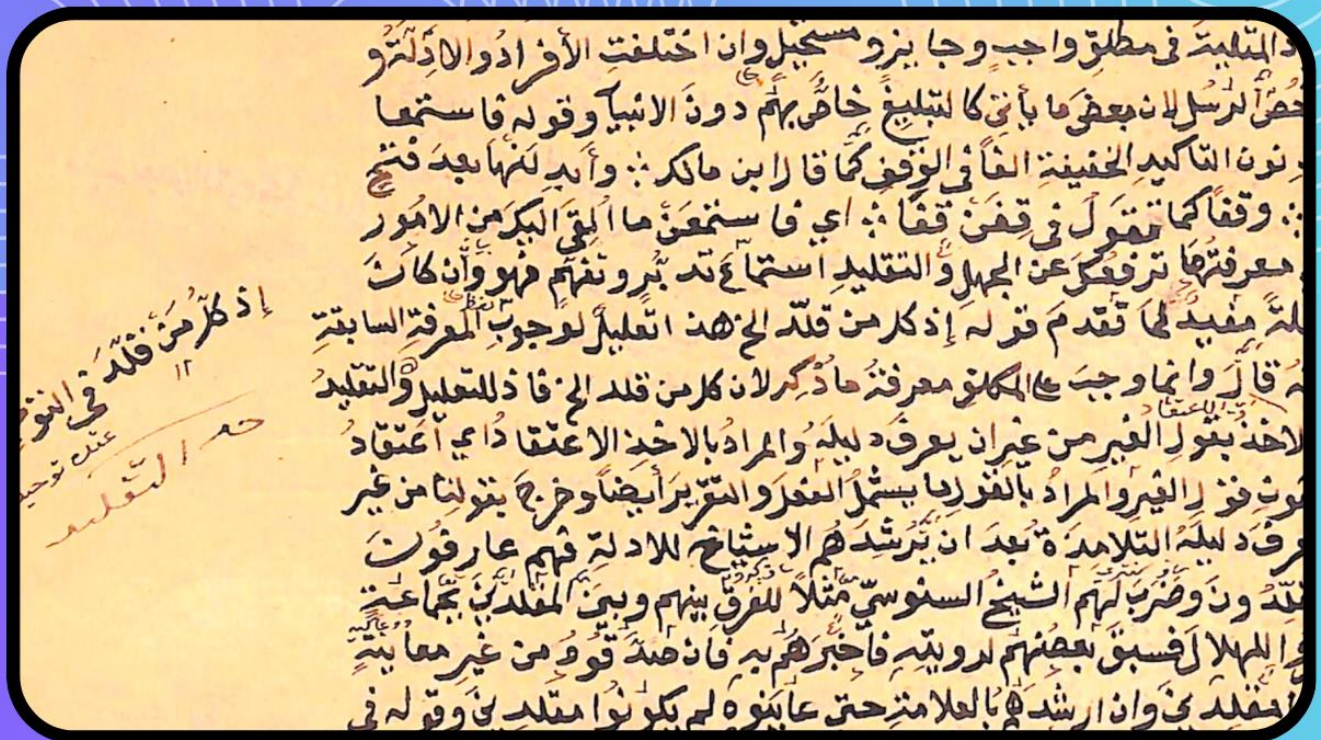 المثلية في مطلق واجب وجايز ومستحيل وان اختلفت الأفراد والادلة و
الرسل لان بعض ما يأتي كالتبليغ خاص بهم دون الانبيا وقوله فاستمعا
نون التاكيد الخفيفة الفا في الوقف كما قال ابن مالك ؞ وأبدلنها بعد فتح
؞ وقفا كما تقول في قفن قفا ؞ اي فاستمعن ما القي اليك من الامور
معرفتها ترفعك عن الجهل والتقليد استماع تدبر وتفهم فهو وان كانت
مفيد لما تقدم قوله إذ كل من قلد الخ هذا تعليل لوجوب المعرفة السابقة
قال وانما وجب على المكلف معرفة ما ذكر لان كل من قلد الخ فاذ للتعليل والتقليد
الاخذ بقول الغير من غير ان يعرف دليله والمراد بالاخذ الاعتقاد اي اعتقاد
قول الغير والمراد بالقول ما يشمل الفعل والتقرير أيضا وخرج بقولنا من غير
دليله التلامذة بعد ان ترشدهم الاشياخ للادلة فهم عارفون
وضرب لهم الشيخ السنوسي مثلا للفرق بينهم وبين المقلدين بجماعة
للهلال فسبق بعضهم لرويته فأخبرهم به فان صدقوه من غير معاينة
مقلدين وان ارشدهم بالعلامة حتى عاينوه لم يكونوا مقلدين وقوله في
إذ كل من قلد في
١٢
التقليد